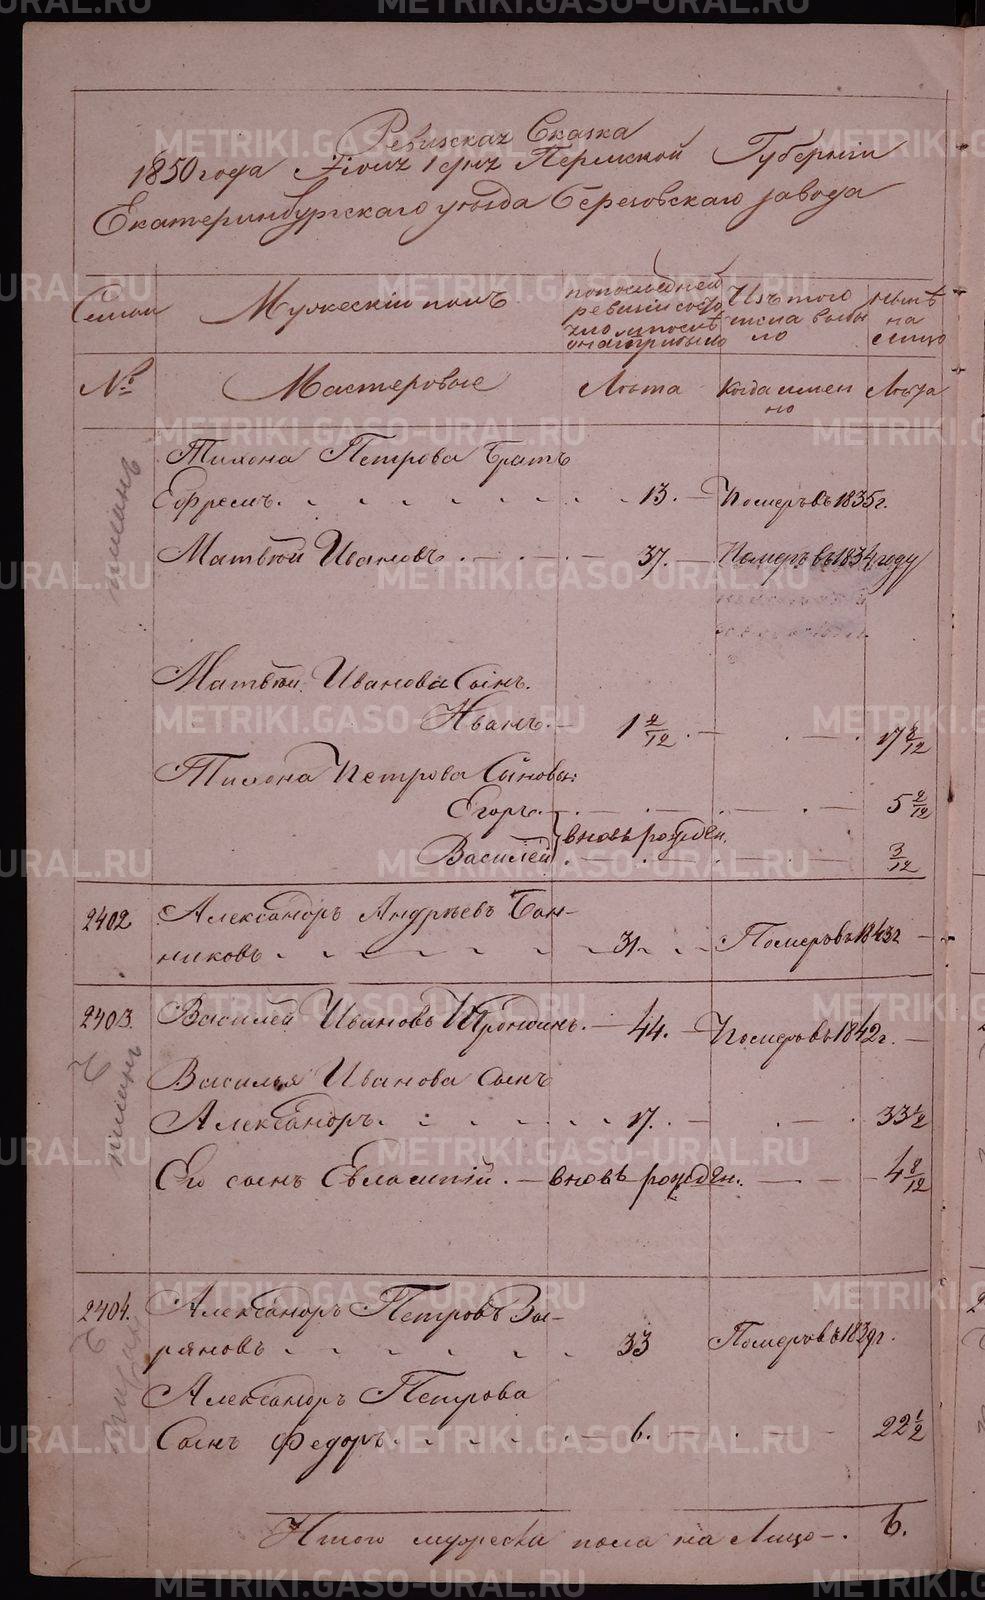 Ревизская Сказка
1850 года Іюля 1 дня Пермской Губерніи
Екатеринбургскаго уѣзда Березовскаго завода
Семьи
Мужескій полъ
по последней ревизіи состояло и после оной прибыло
Изъ того числа выбыло
Нынѣ на лицо
№
Мастеровые
Лѣта
когда именно
Лѣта
Тихона Петрова братъ
Ефремъ. 13. Померъ въ 1835 г.
Матвѣй Ивановъ. 37. Померъ въ 1834 году
Матвѣя Иванова Сынъ.
Иванъ. 1 2/12. 17 8/12
Тихона Петрова Сыновья:
Егоръ. 5 2/12
вновь рожден.
Василей 3/12
2402 Александръ Андреевъ Бан-
никовъ 31. Померъ въ 1843 г.
2403. Василей Ивановъ 44. Померъ въ 1842 г.
Василья Иванова Сынъ
Александръ. 17. 33 1/2
Его сынъ Евлампій. вновь рожден. 4 8/12
2404. Александръ Петровъ
ряновъ 33 Померъ въ 1839 г.
Александръ Петрова
Сынъ Федоръ. 6. 22 1/2
Итого мужеска пола на Лицо. 6.
METRIKI.GASO-URAL.RU